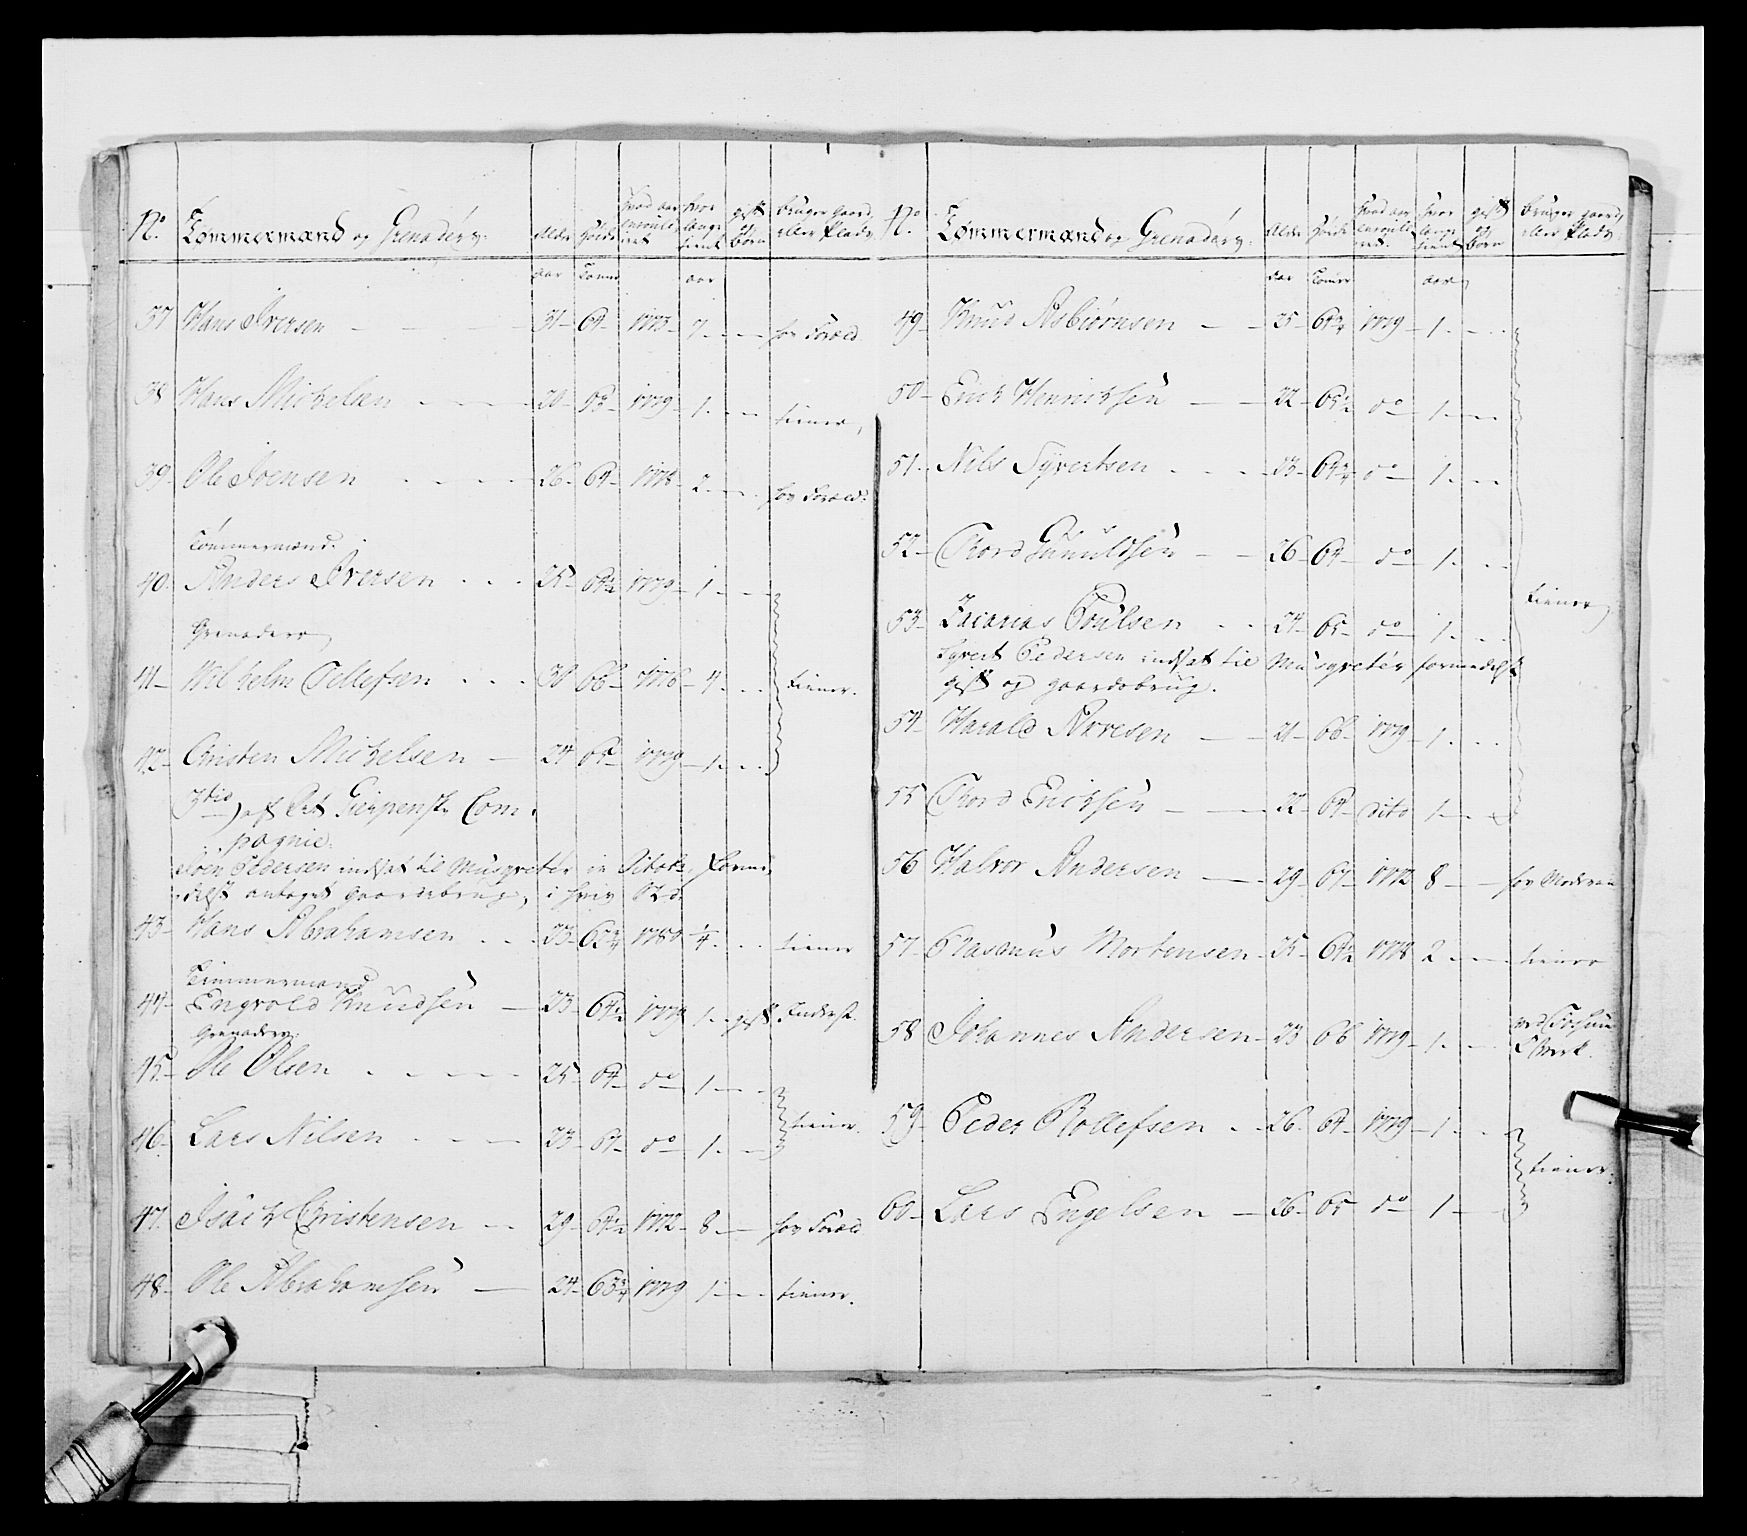 No. Tømmermænd og Grenaderer. alder Høide hvad aar enroulleret hvor lange tient gift og børn bruger gaard eller Plads
aar Tomer aar
37 Hans Iversen 31 64 1773 7 hos Foræld
38 Hans Michelsen 20 1779 1 tiener
39 Ole Joensen 26 64 1778 2 hos Foræld:
Tømmermænd.
40 Anders Iversen 25 64½ 1779 1
Grenaderer
41 Wilhelm Tellefsen 30 66 1776 4 tiener.
42 Christen Michelsen 24 1779 1
3die) af Det Gierpenske Com-
pagnie.
Joen Pedersen indsat til Musqueter
antaget Gaardebrug, i hvis Sted
43 Hans Abrahamsen 23 1780 ¼ tiener
Timmermænd
44 Engvold Knudsen 23 64½ 1779 1 gift Inderst.
Grenaderer.
45 Ole Olsen 25 64 do 1
46 Lars Nilsen 23 64 do 1 tiener.
47 Isaich Christensen 29 64½ 1772 8 hos Foræld
48 Ole Abrahamsen 24 63¾ 1779 1 tiener.
No. Tømmermænd og Grenaderer. alder Høide hvad aar enroulleret. hvor lange tient gift og børn bruger gaard eller Plads
aar Tomer aar
49 Knud Asbiørnsen 25 64¾ 1779 1
50 Erich Henrichsen 22 65½ do 1
51 Nils Syvertsen 23 64¾ do 1
52 Thord Gunuldsen 26 64 do 1
tiener
53 Zacarias Poulsen 24 65 do 1
Syvert Pedersen indsat til Musqveteer formedelst
gift og gaardsbrug.
54 Harald Arvesen 21 66 1779 1
55 Thord Erichsen 22 64 dito 1
56 Halvor Andersen 29 67 1772 8 hos Moderen
57 Rasmus Mortensen 25 64½ 1778 2 tiener
58 Johannes Andersen 23 66 1779 1 ved Fossum Werk.
59 Peder Rollefsen 26 64 1779 1
tiener.
60 Lars Engelsen 26 65 do 1